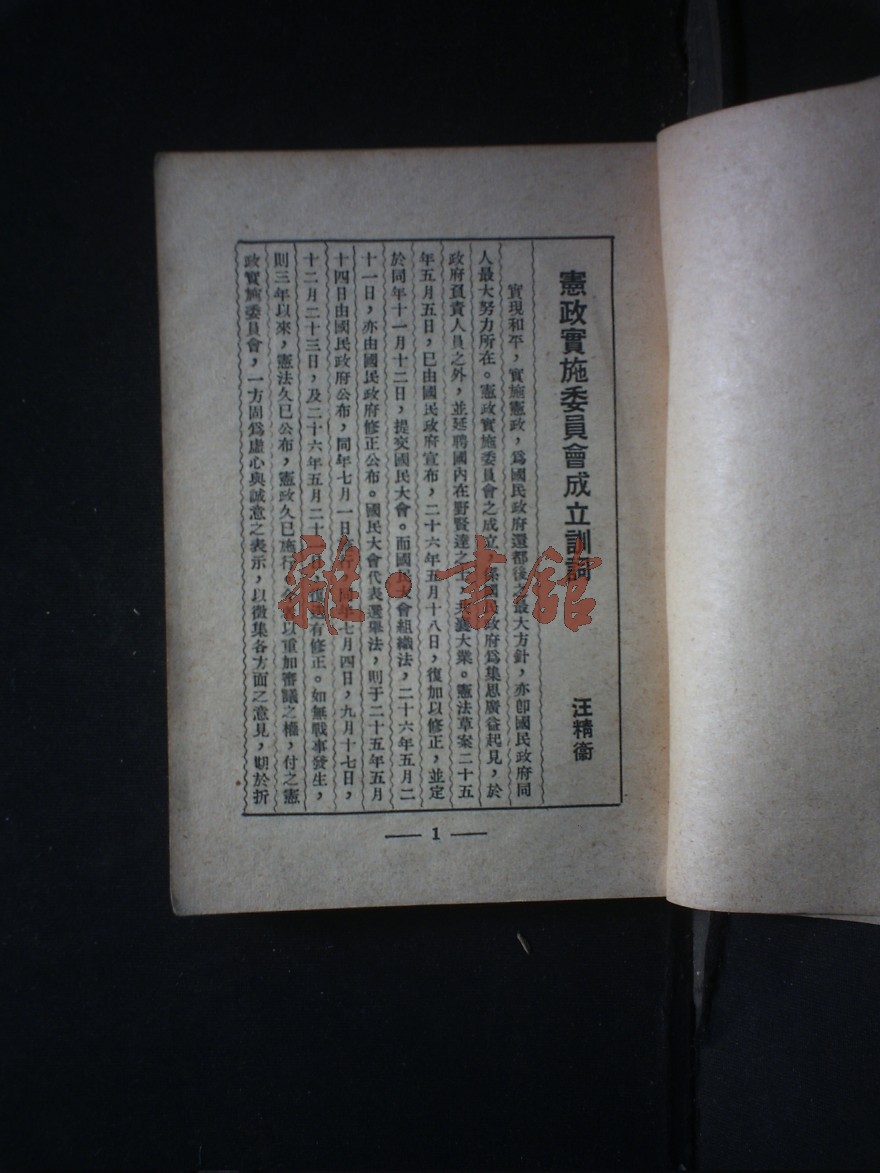 憲政實施委員會成立訓詞
汪精衞
實現和平，實施憲政，爲國民政府還都後之最大方針，亦卽國民政府同
人最大努力所在。憲政實施委員會之成立，係國民政府爲集思廣益起見，於
政府負責人員之外，並延聘國內在野賢達之士，共襄大業。憲法草案二十五
年五月五日，已由國民政府宣布，二十六年五月十八日，復加以修正，並定
於同年十一月十二日，提交國民大會。而國民大會組織法，二十六年五月二
十一日，亦由國民政府修正公布。國民大會代表選舉法，則于二十五年五月
十四日由國民政府公布，同年七月一日施行，同年七月四日，九月十七日，
十二月二十三日，及二十六年五月二十一日，復遞有修正。如無戰事發生，
則三年以來，憲法久已公布，憲政久已施行。今者以重加審議之權，付之憲
政實施委員會，一方固爲虛心與誠意之表示，以徵集各方面之意見，期於折
— 1 —
雜·書館